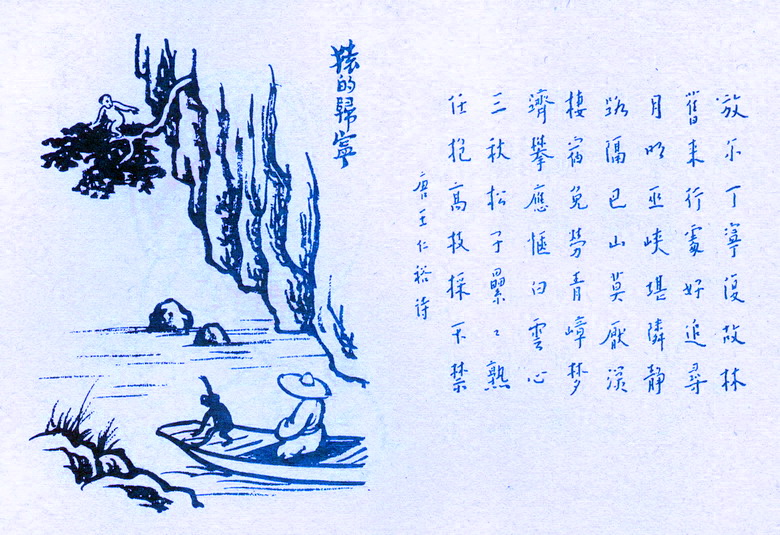 放尔丁寧復故林
舊来行處好追尋
月明巫峽堪隣静
路隔巴山莫厭深
棲宿免勞青嶂梦
躋攀應愜白雲心
三秋松子纍々熟
任抱高枝採不禁
唐王仁裕詩
猿的歸寧